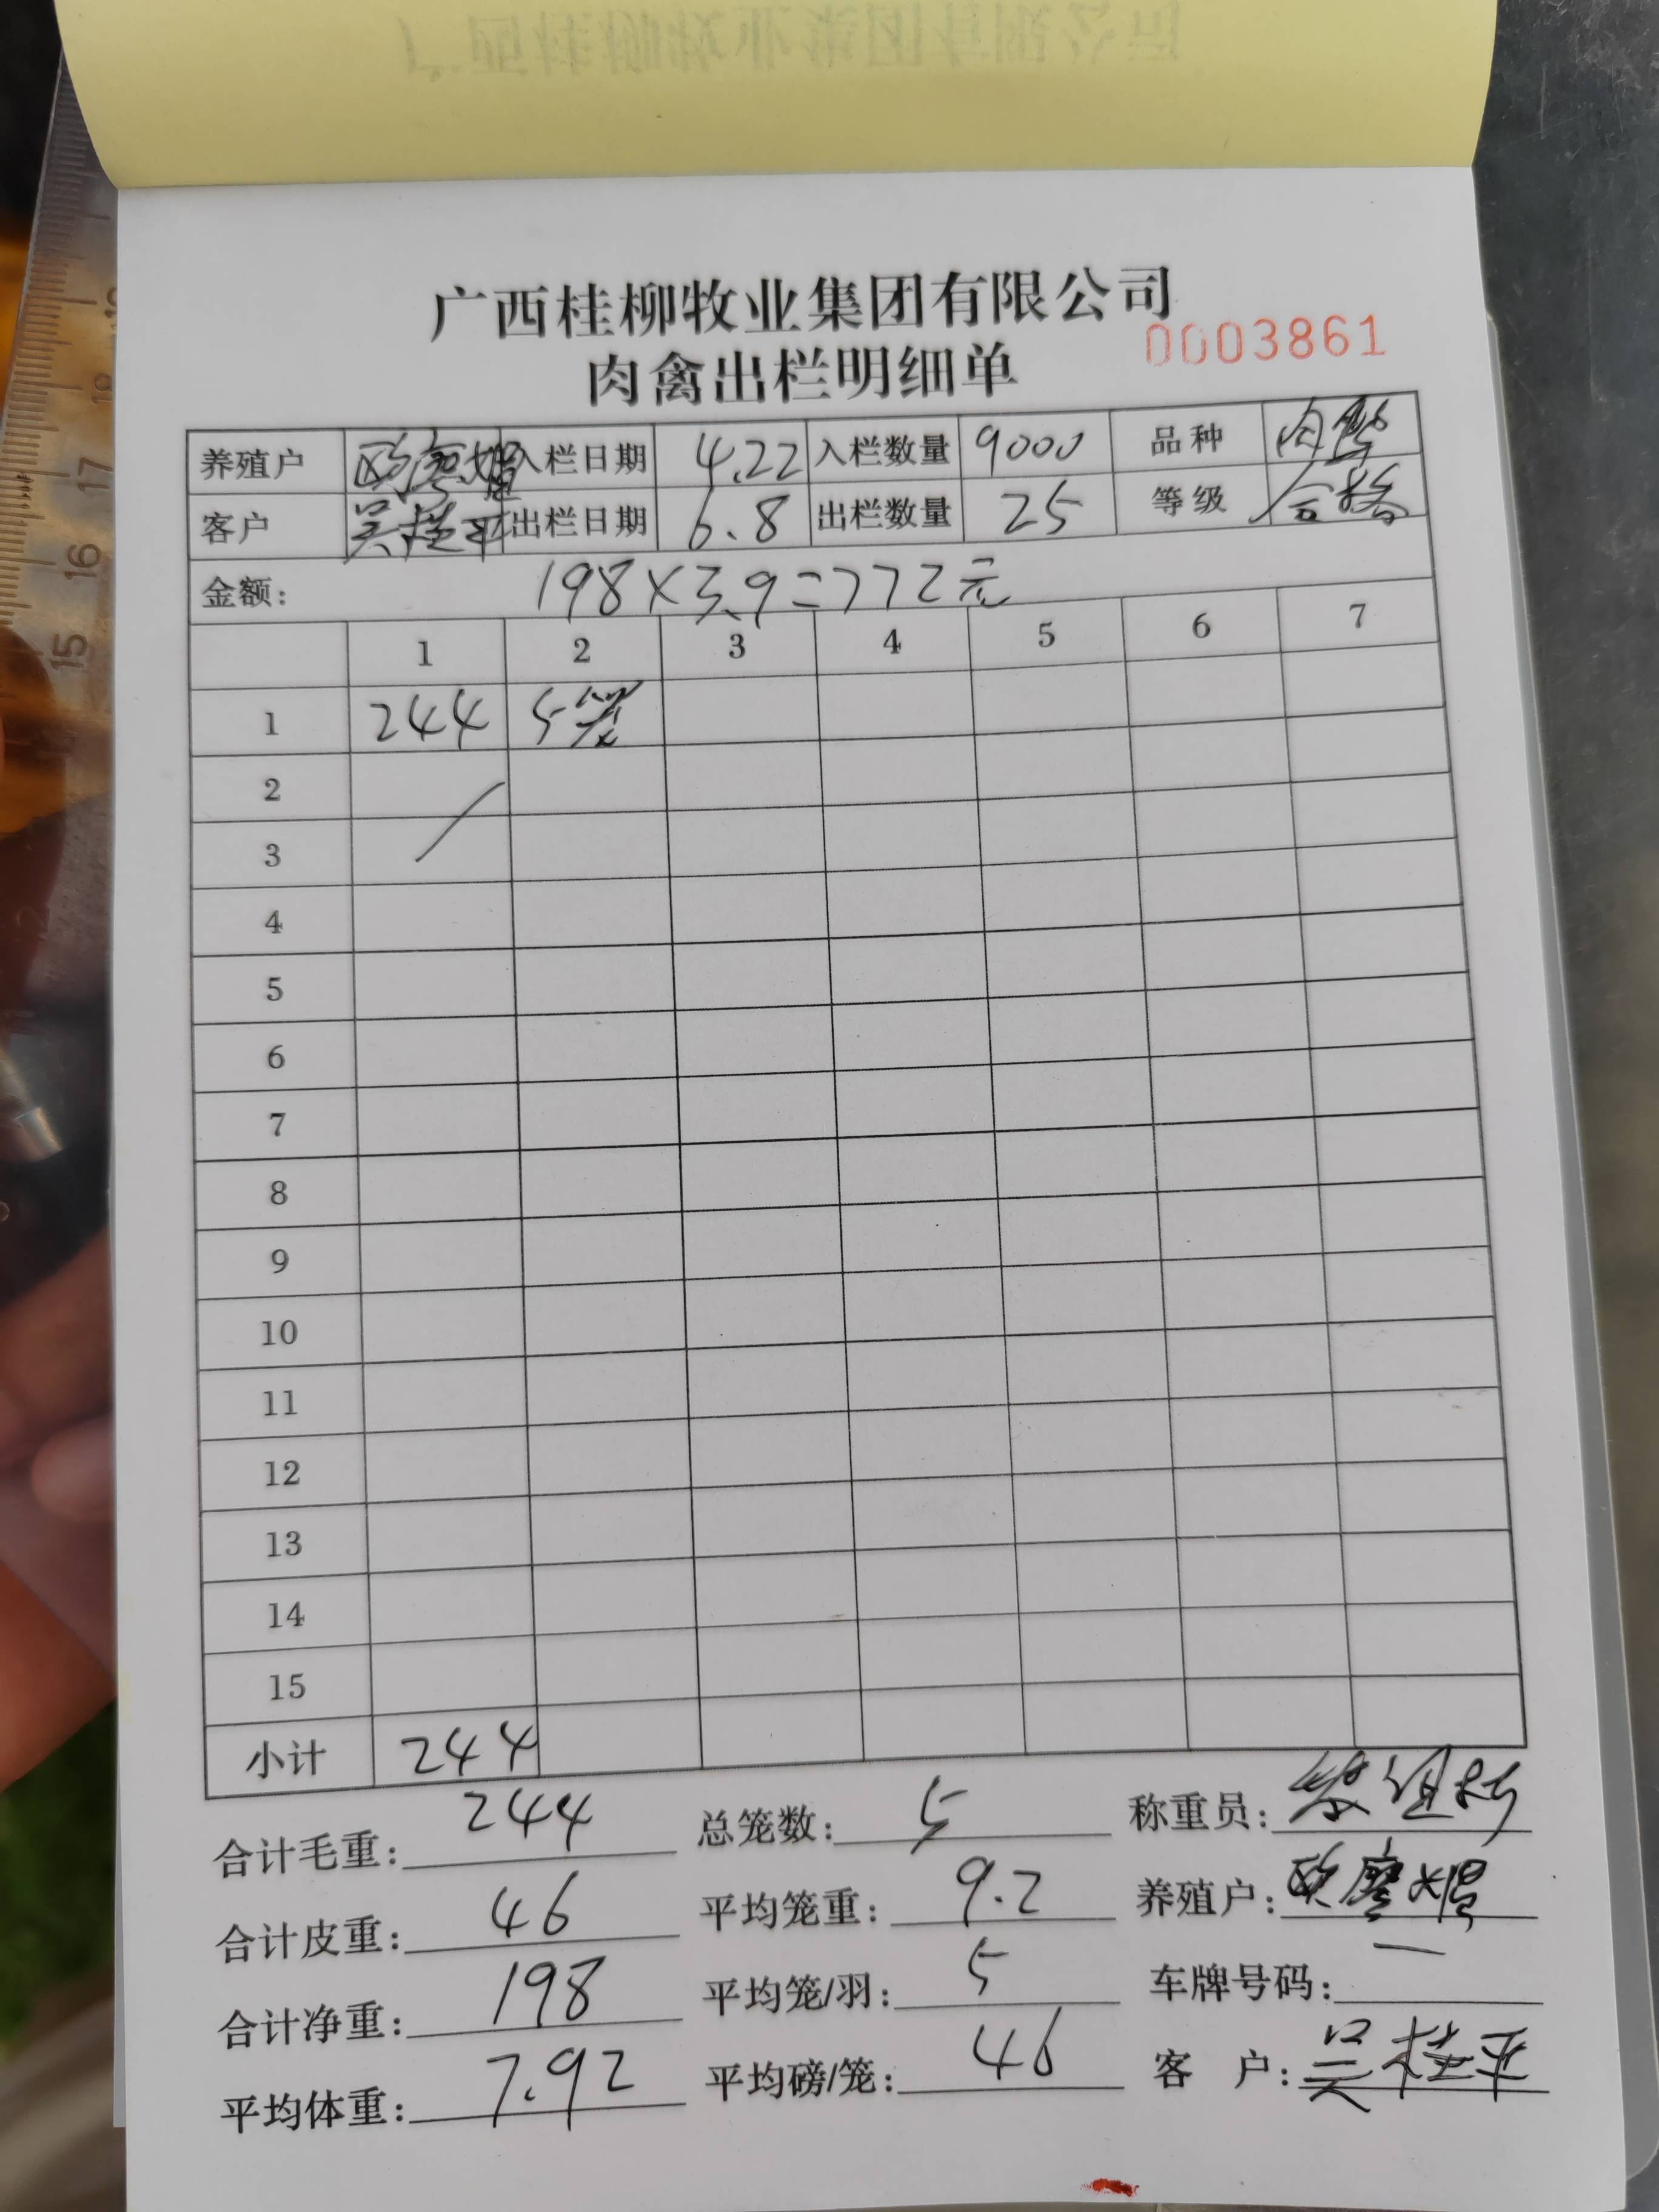 广西桂柳牧业集团有限公司
肉禽出栏明细单 0003861
养殖户 入栏日期 4.22 入栏数量 9000 品种 肉鸭
客户 吴桂平 出栏日期 6.8 出栏数量 25 等级 合格
金额: 198×3.9=772元
1 2 3 4 5 6 7
1 244 5笼
2
3
4
5
6
7
8
9
10
11
12
13
14
15
小计 244
合计毛重: 244 总笼数: 5 称重员:
合计皮重: 46 平均笼重: 9.2 养殖户:
合计净重: 198 平均笼/羽: 5 车牌号码: 一
平均体重: 7.92 平均磅/笼: 46 客 户: 吴桂平
15
16
17
18
19